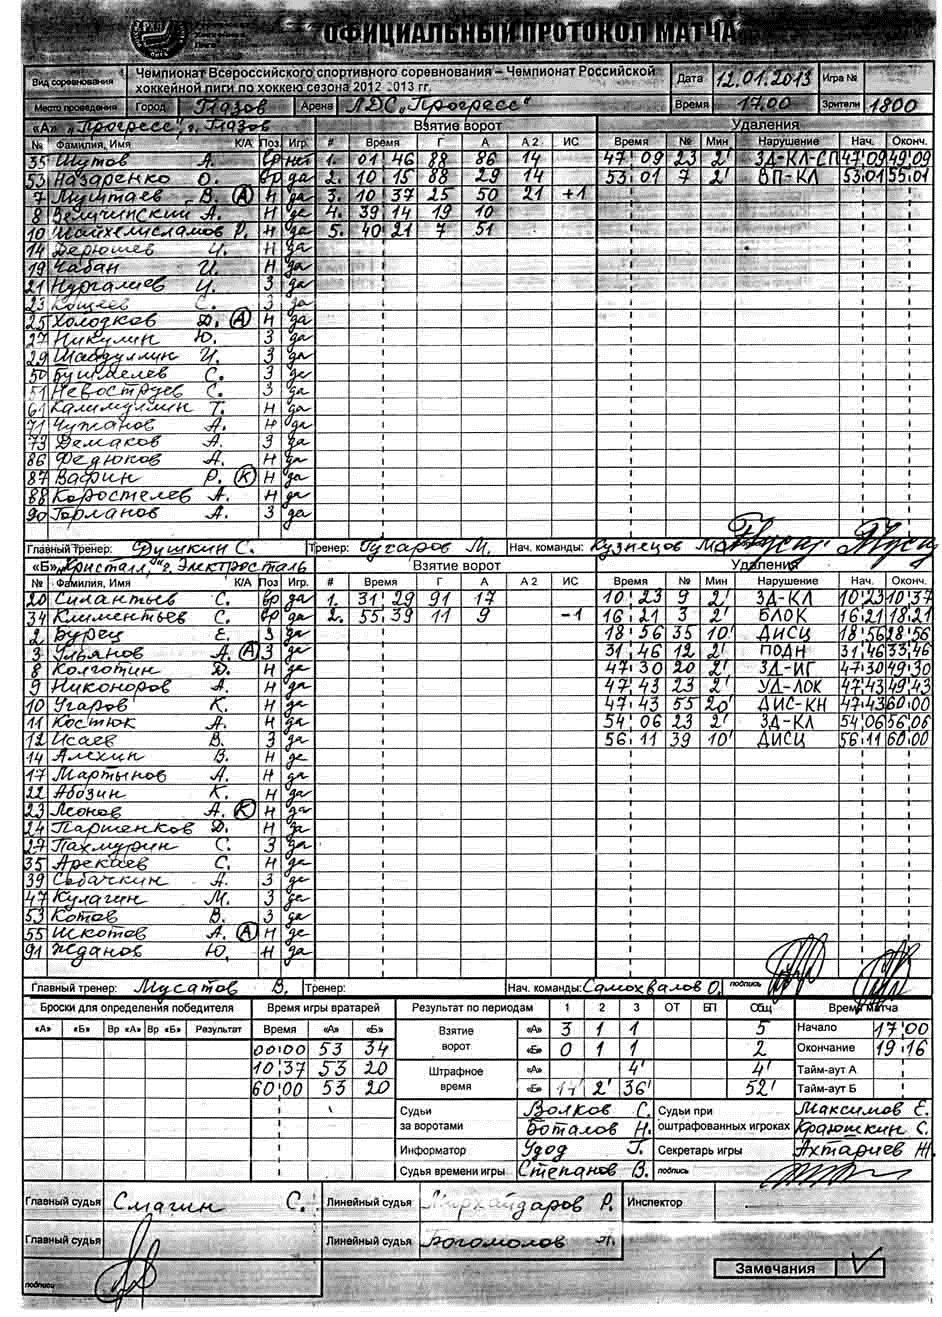 ОФИЦИАЛЬНЫЙ ПРОТОКОЛ МАТЧА
Вид соревнования Чемпионат Всероссийского спортивного соревнования – Чемпионат Российской хоккейной лиги по хоккею сезона 2012-2013 гг. Дата 12.01.2013 Игра №
Место проведения Город Глазов Арена ЛДС „Прогресс" Время 17.00 Зрители 1800
«А» „Прогресс", г. Глазов Взятие ворот Удаления
№ Фамилия, Имя К/А Поз Игр. # Время Г А А 2 ИС Время № Мин Нарушение Нач. Оконч.
35 Шутов А. вр нет 1. 01 46 88 86 14 47 09 23 2' ЗД-КЛ-СП 47 09 49 09
53 Назаренко О. вр да 2. 10 15 88 29 14 53 01 7 2' ВП-КЛ 53 01 55 01
7 Муштаев В. А Н да 3. 10 37 25 50 21 +1
8 Величинский А. Н да 4. 39 14 19 10
10 Шайхелисламов Р. Н да 5. 40 21 7 51
14 Дерюшев И. Н да
19 Чабан И. Н да
21 Нургалиев И. З да
23 Кощеев С. З да
25 Холодков Д. А Н да
27 Никулин Ю. З да
29 Шабдуллин И. З да
50 Бушмелев С. З да
51 Невоструев С. З да
61 Калимуллин Т. Н да
71 Чужанов А. Н да
73 Демаков А. З да
86 Федюков А. Н да
87 Вафин Р. К Н да
88 Коростелев А. Н да
90 Горланов А. З да
Главный тренер: Душкин С. Тренер: Гугаров М. Нач. команды: Кузнецов
«Б» „Кристалл", г. Электросталь Взятие ворот Удаления
№ Фамилия, Имя К/А Поз Игр. # Время Г А А 2 ИС Время № Мин Нарушение Нач. Оконч.
20 Силантьев С. вр да 1. 31 29 91 17 10 23 9 2' ЗД-КЛ 10 23 10 37
34 Климентьев С. вр да 2. 55 39 11 9 –1 16 21 3 2' БЛОК 16 21 18 21
2 Бурец Е. З да 18 56 35 10' ДИСЦ 18 56 28 56
3 Ульянов А. А З да 31 46 12 2' ПОДН 31 46 33 46
8 Колготин Д. Н да 47 30 20 2' ЗД-ИГ 47 30 49 30
9 Никоноров А. Н да 47 43 23 2' УД-ЛОК 47 43 49 43
10 Угаров К. Н да 47 43 55 20' ДИС-КН 47 43 60 00
11 Костюк А. Н да 54 06 23 2' ЗД-КЛ 54 06 56 06
12 Исаев В. З да 56 11 39 10' ДИСЦ 56 11 60 00
14 Алехин В. Н да
17 Мартынов А. Н да
22 Абозин К. Н да
23 Леонов А. К Н да
24 Паршенков Д. Н да
27 Пахмурин С. З да
35 Арекаев С. Н да
39 Собачкин А. З да
47 Кулагин М. З да
53 Котов В. З да
55 Искотов А. А Н да
91 Жданов Ю. Н да
Главный тренер: Мусатов В. Тренер: Нач. команды: Самохвалов О. подпись
Броски для определения победителя Время игры вратарей Результат по периодам 1 2 3 ОТ БП Общ Время матча
«А» «Б» Вр «А» Вр «Б» Результат Время «А» «Б» Взятие ворот «А» 3 1 1 5 Начало 17 00
00:00 53 34 «Б» 0 1 1 2 Окончание 19 16
10 37 53 20 Штрафное время «А» 4' 4' Тайм-аут А
60 00 53 20 «Б» 14' 2' 36' 52' Тайм-аут Б
Судьи за воротами Волков С. Судьи при оштрафованных игроках Максимов Е.
Боталов Н. Краюшкин С.
Информатор Удод Г. Секретарь игры Ахтариев Ж.
Судья времени игры Степанов В. подпись
Главный судья Смагин С. Линейный судья Мирхайдаров Р. Инспектор
Главный судья Линейный судья Богомолов
подписи
Замечания